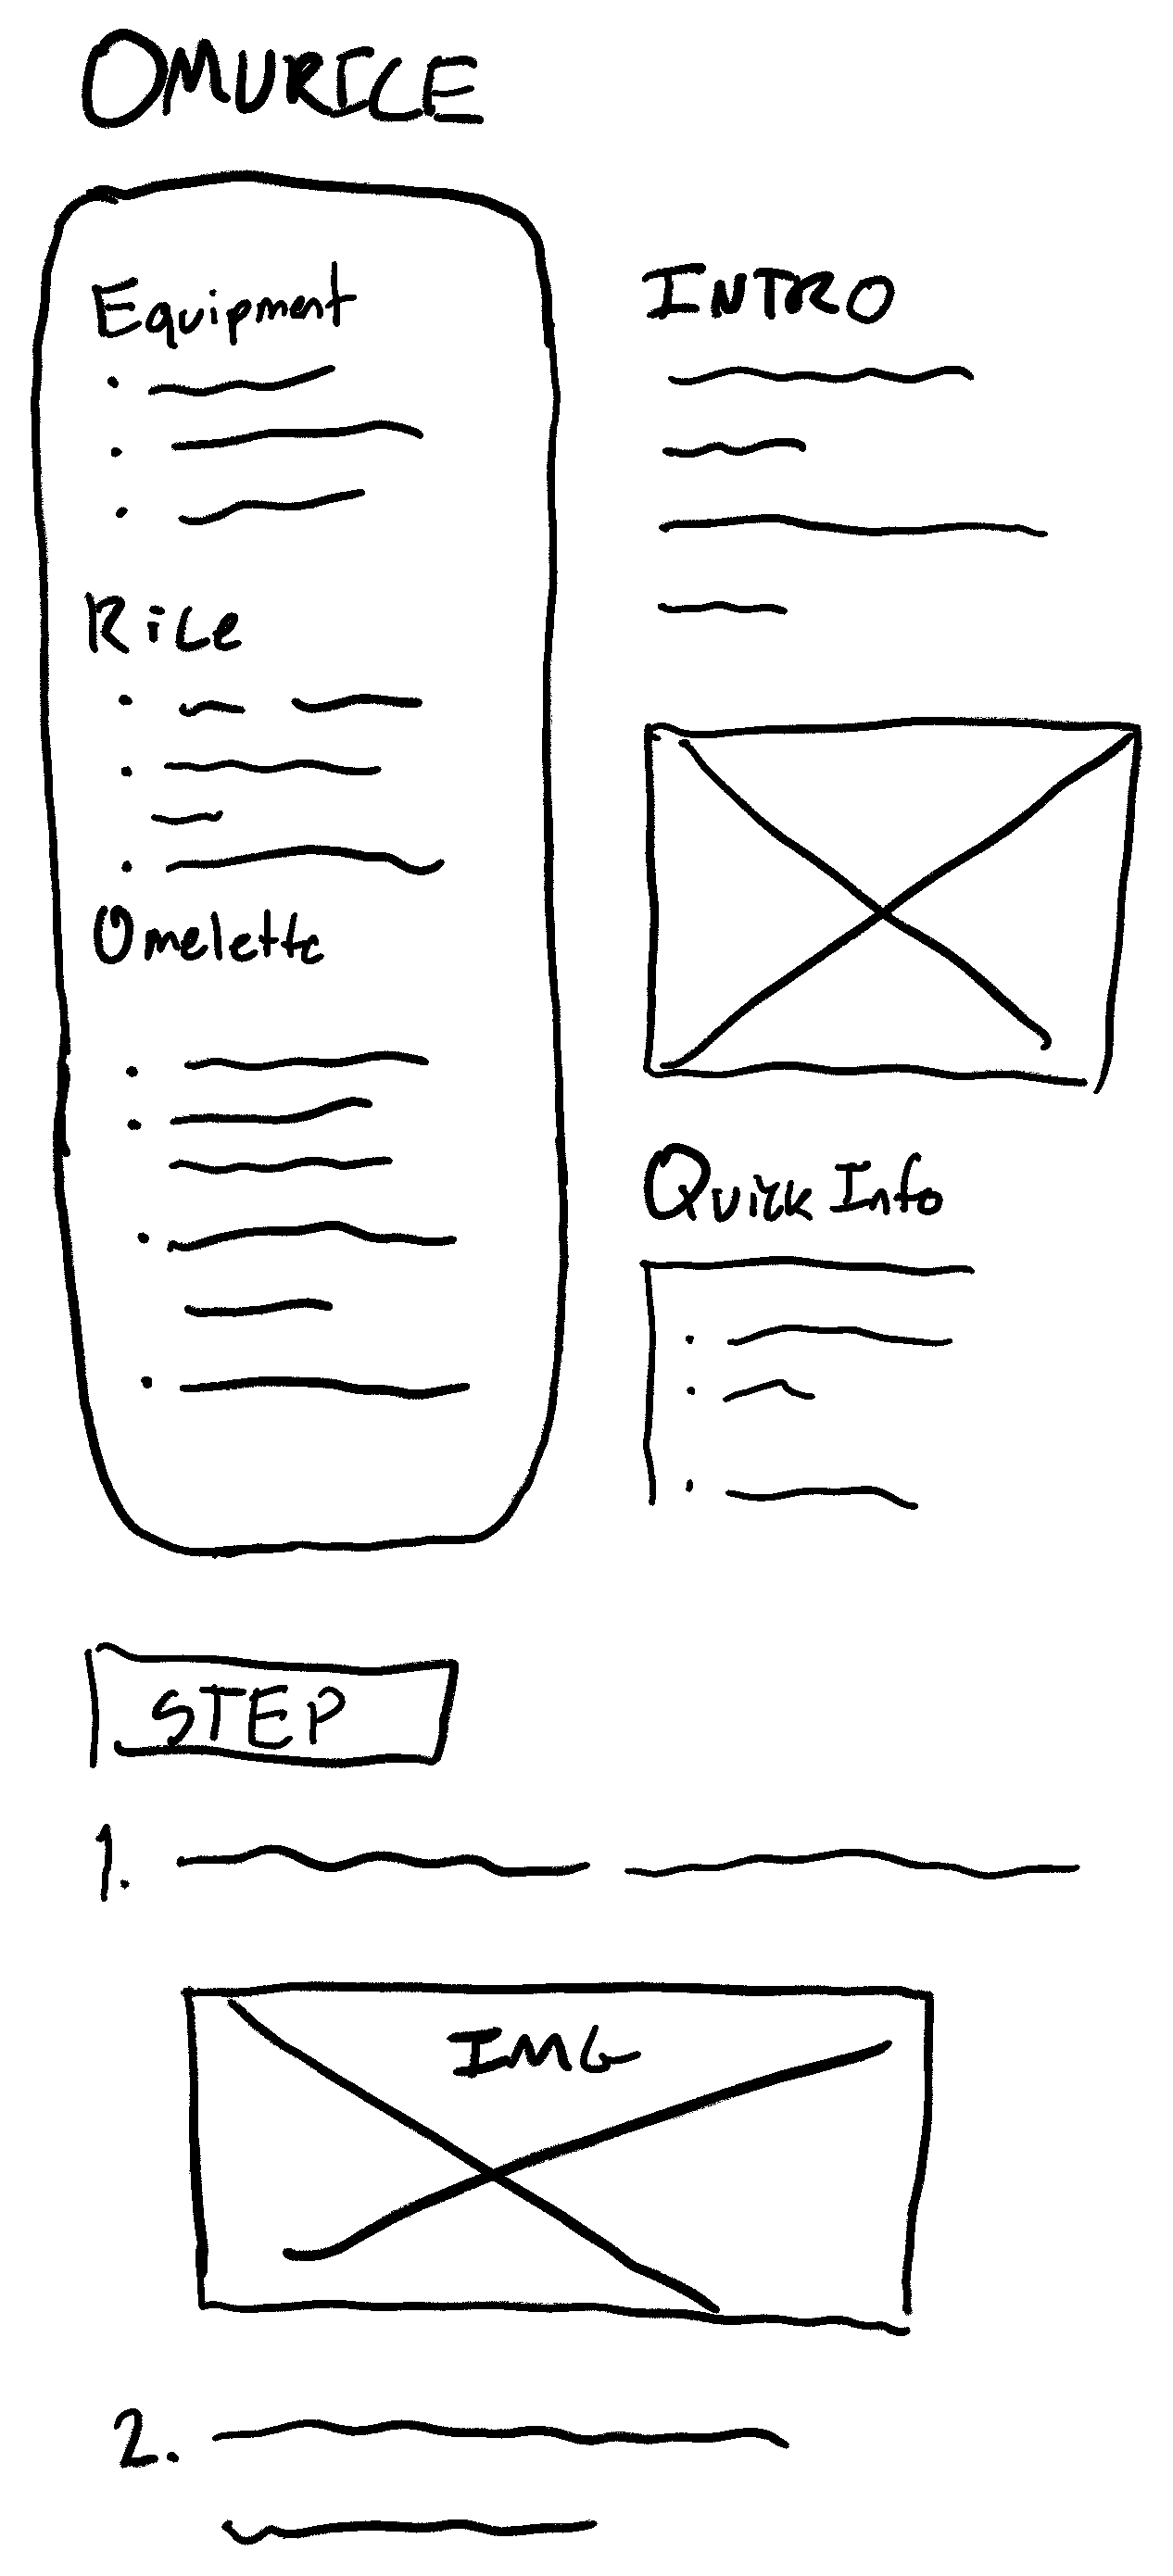 OMURICE
Equipment
Rice
Omelette
INTRO
Quick Info
STEP
1.
IMG
2.